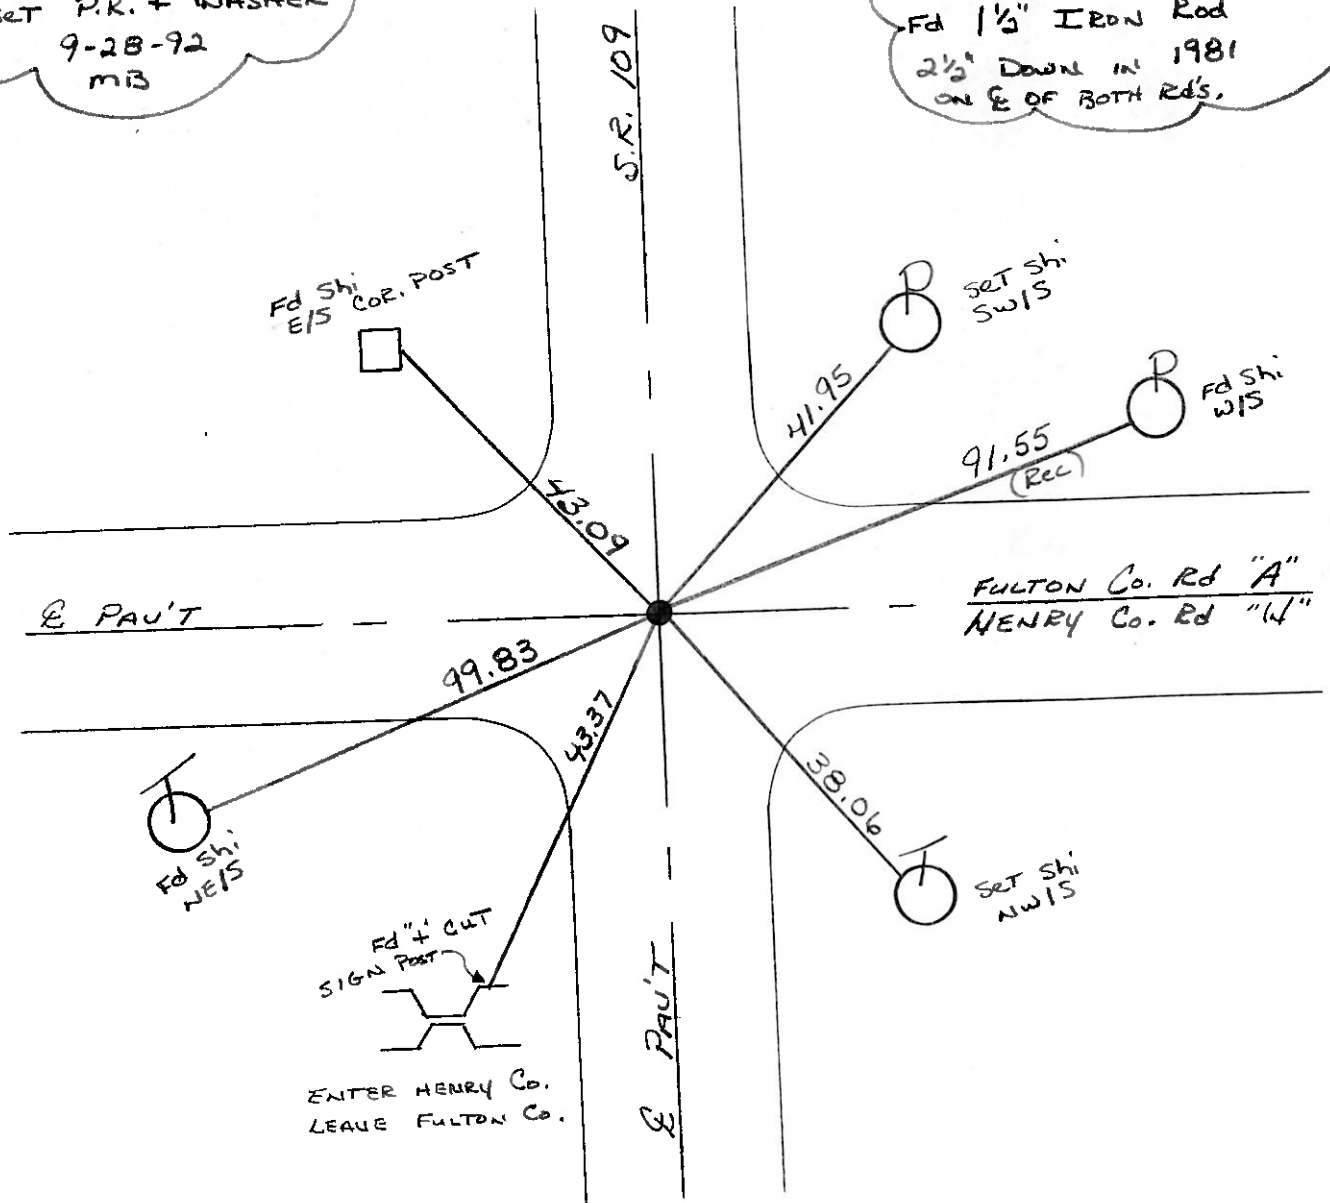 SET P.R. + WASHER
9-28-92
MB
Fd 1½" IRON Rod
2½" DOWN IN 1981
ON ℄ OF BOTH Rd's.
S.R. 109
Fd Shi
E/S COR. POST
SET Shi
SW/S
Fd Shi
W/S
41.95
91.55
(Rec)
43.09
℄ PAV'T
FULTON Co. Rd "A"
HENRY Co. Rd "W"
99.83
43.37
38.06
Fd Shi
NE/S
SET Shi
NW/S
Fd "+" CUT
SIGN POST
℄ PAV'T
ENTER HENRY Co.
LEAVE FULTON Co.